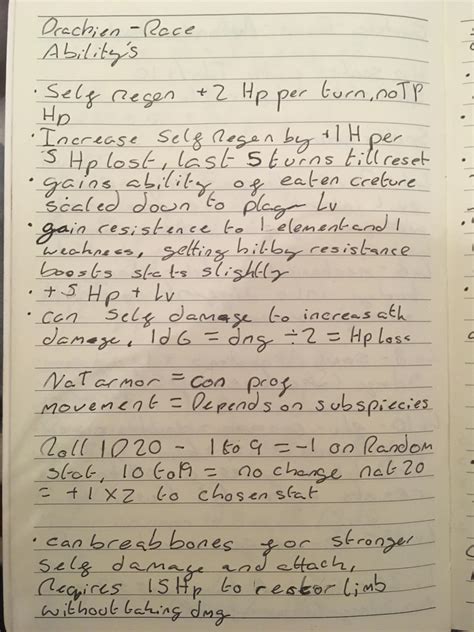 Drachien - Race
Ability's
· Self regen +2 Hp per turn, not TP
Hp
· Increase Self Regen by +1 H per
5 Hp lost, last 5 turns till reset
· gains ability of eaten creture
scaled down to player Lv
· gain resistence to 1 element and 1
weakness, getting hit by resistance
boosts stats slightly
· +5 Hp + Lv
· can self damage to increas atk
damage, 1d6 = dmg ÷2 = Hp loss
Nat armor = con prof
movement = Depends on subspiecies
Roll 1D20 - 1 to 9 = -1 on Random
stat, 10 to 19 = no change nat 20
= +1 x2 to chosen stat
· can break bones for stronger
self damage and attack,
Requires 15Hp to restor limb
without taking dmg